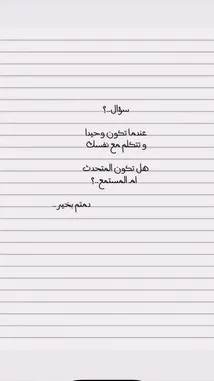 سؤال..؟
عندما تكون وحيدا
و تتكلم مع نفسك
هل تكون المتحدث
ام المستمع..؟
دمتم بخير..